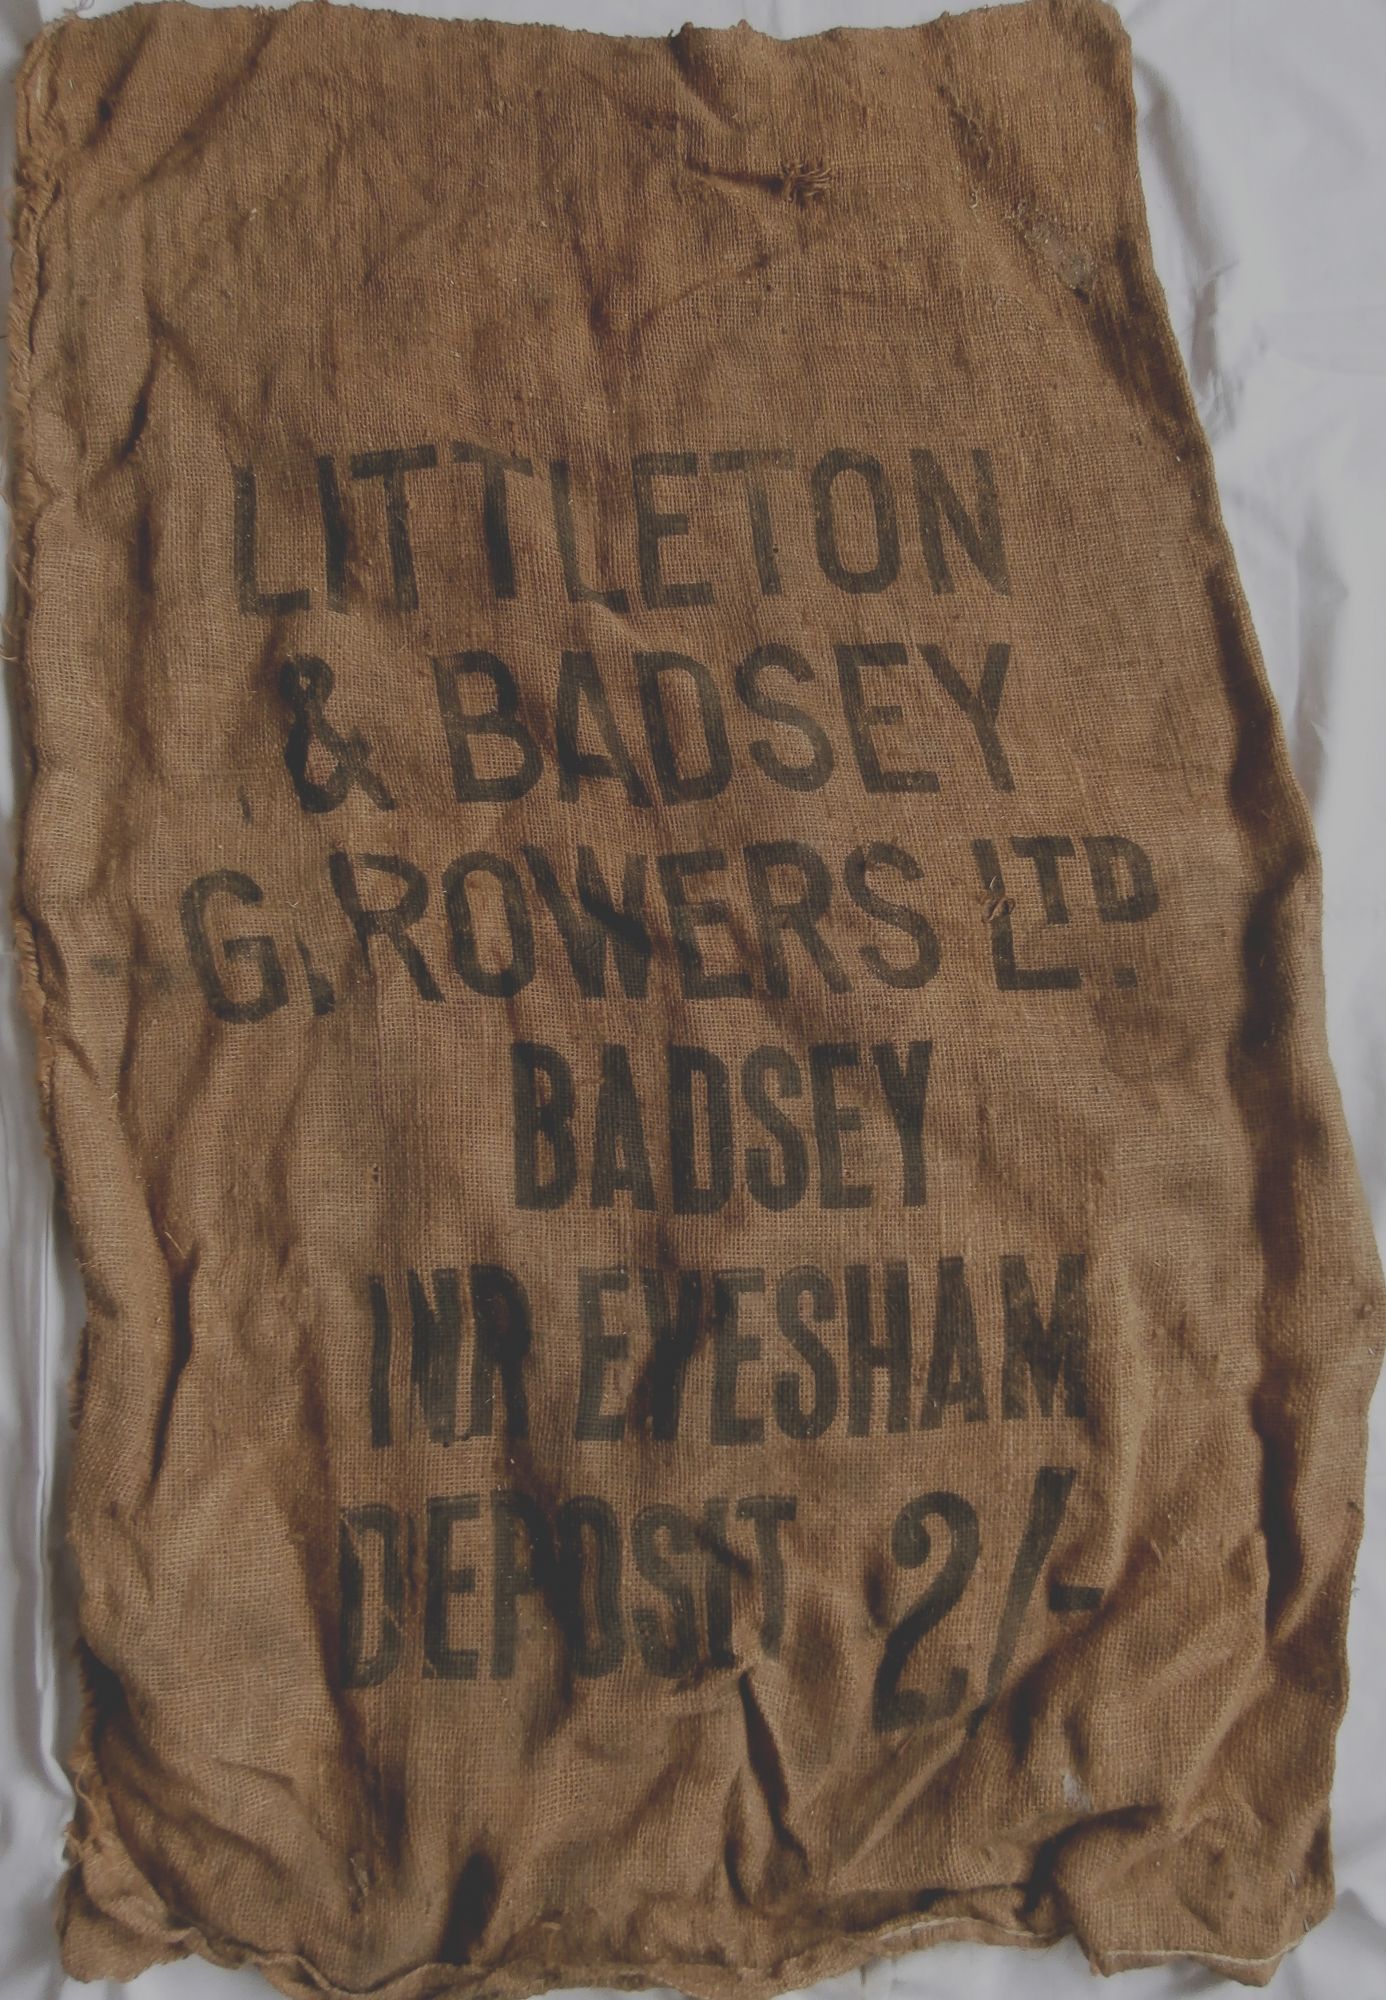 LITTLETON
& BADSEY
GROWERS LTD.
BADSEY
NR EVESHAM
DEPOSIT 2/-